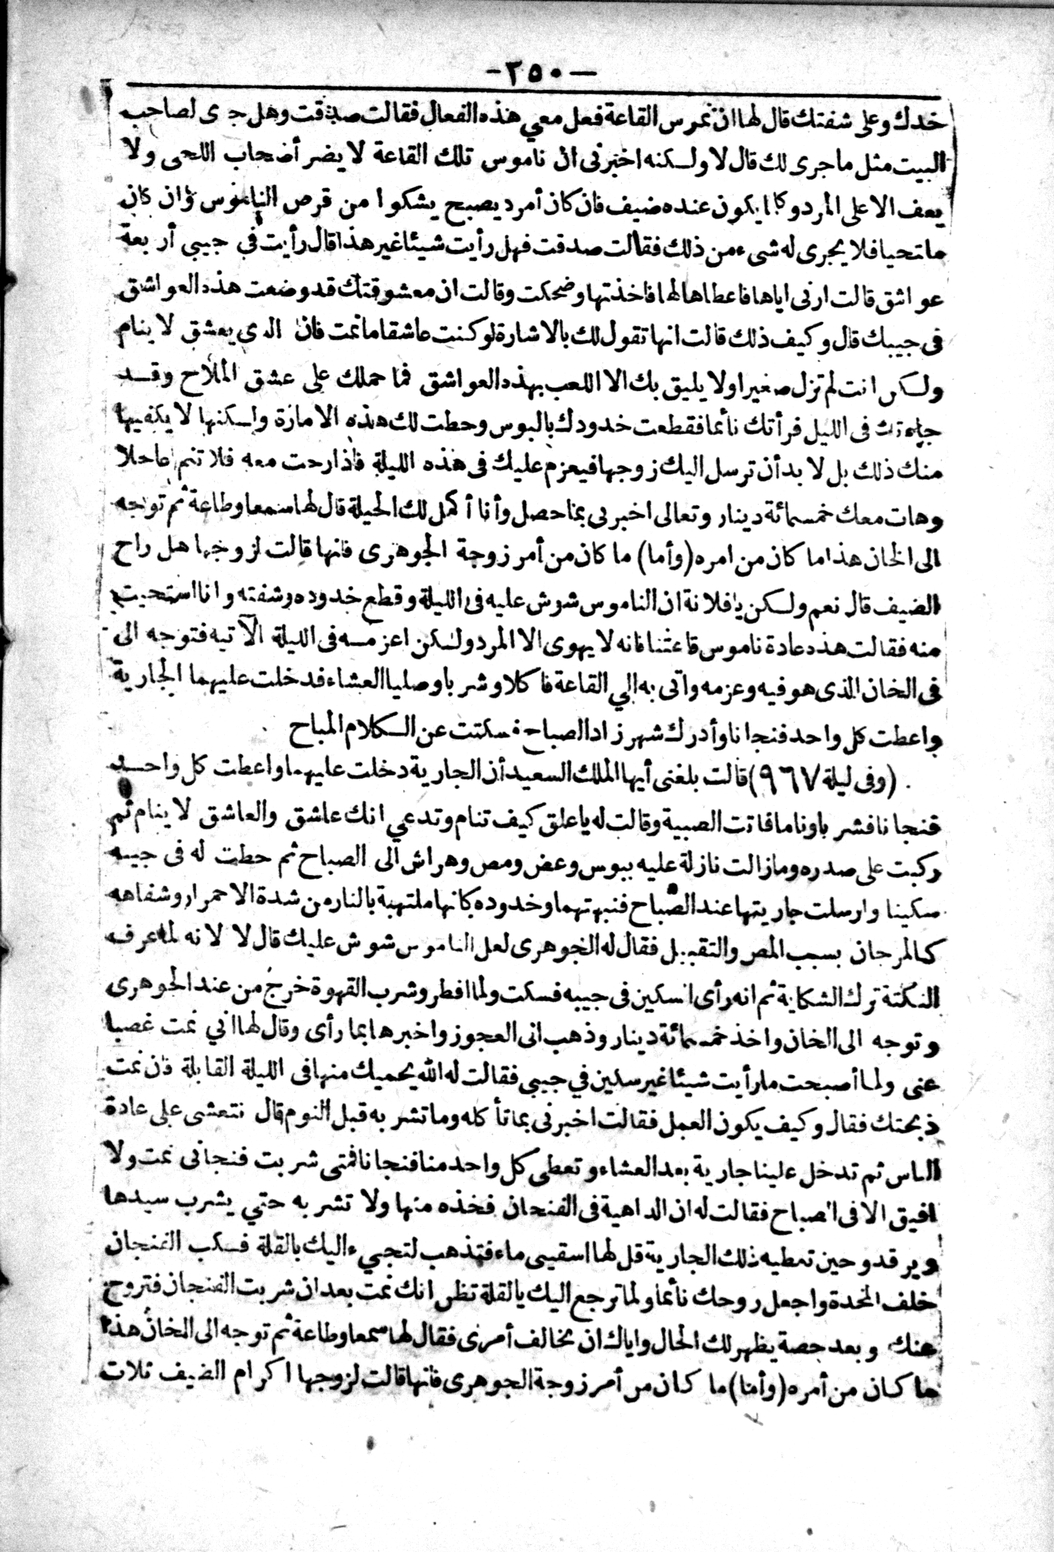 — ٣٥٠ —
خدك وعلى شفتك قال لها ان نموس القاعة فعل معي هذه الفعال فقالت صدقت وهل جرى لصاحب
البيت مثل ما جرى لك قال لا ولكنه اخبرنى ان ناموس تلك القاعة لا يضر أصحاب اللحى ولا
يعف الا على المرد وكلما يكون عنده ضيف فان كان أمرد يصبح يشكوا من قرص الناموس وان كان
ملتحيا فلا يجرى له شىء من ذلك فقالت صدقت فهل رأيت شيئا غير هذا قال رأيت فى جيبي أربعة
عواشق قالت ارنى اياها فاعطاها لها فاخذتها وضحكت وقالت ان معشوقتك قد وضعت هذه العواشق
فى جيبك قال وكيف ذلك قالت انها تقول لك بالاشارة لو كنت عاشقا ما نمت فان الذى يعشق لا ينام
ولكن انت لم تزل صغيرا ولا يليق بك الا اللعب بهذه العواشق فما حملك على عشق الملاح وقد
جاءتك فى الليل فرأتك نائما فقطعت خدودك بالبوس وحطت لك هذه الامارة ولكنها لا يكفيها
منك ذلك بل لا بد أن ترسل اليك زوجها فيعزم عليك فى هذه الليلة فاذا رحت معه فلا تنم عاجلا
وهات معك خمسمائة دينار وتعالى اخبرنى بما حصل وأنا أكمل لك الحيلة قال لها سمعا وطاعة ثم توجه
الى الخان هذا ما كان من امره (وأما) ما كان من أمر زوجة الجوهرى فانها قالت لزوجها هل راح
الضيف قال نعم ولكن يا فلانة ان الناموس شوش عليه فى الليلة وقطع خدوده وشفته وانا استحيت
منه فقالت هذه عادة ناموس قاعتنا فانه لا يهوى الا المرد ولكن اعزمه فى الليلة الآتيه فتوجه الى
فى الخان الذى هو فيه وعزمه واتى به إلي القاعة فاكلا وشربا وصليا العشاء فدخلت عليهما الجارية
واعطت كل واحد فنجانا وأدرك شهرزاد الصباح فسكتت عن الكلام المباح
(وفى ليلة ٩٦٧) قالت بلغنى أيها الملك السعيد أن الجارية دخلت عليهما واعطت كل واحد
فنجانا فشربا وناما فاتت الصبية وقالت له يا علق كيف تنام وتدعي انك عاشق والعاشق لا ينام ثم
ركبت على صدره وما زالت نازلة عليه ببوس وعض ومص وهراش الى الصباح ثم حطت له فى جيبه
سكينا وارسلت جاريتها عند الصباح فنبهتهما وخدوده كانها ملتهبة بالنار من شدة الاحمرار وشفاهه
كالمرجان بسبب المص والتقبيل فقال له الجوهرى لعل الناموس شوش عليك قال لا لانه لما عرف
النكتة ترك الشكاية ثم انه رأى السكين فى جيبه فسكت ولما افطر وشرب القهوة خرج من عند الجوهرى
وتوجه الى الخان واخذ خمسمائة دينار وذهب الى العجوز واخبرها بما رأى وقال لها اني نمت غصبا
عنى ولما أصبحت ما رأيت شيئا غير سكين في جيبى فقالت له الله يحميك منها فى الليلة القابلة فان نمت
ذبحتك فقال وكيف يكون العمل فقالت اخبرنى بما تأكله وما تشربه قبل النوم قال نتعشى على عادة
الناس ثم تدخل علينا جارية بعد العشاء وتعطى كل واحد منا فنجانا فمتى شربت فنجانى نمت ولا
افيق الا فى الصباح فقالت له ان الداهية فى الفنجان فخذه منها ولا تشربه حتي يشرب سيدها
ويرقد وحين تعطيه ذلك الجارية قل لها اسقيني ماء فتذهب لتجيء اليك بالقلة فكب الفنجان
خلف المخدة واجعل روحك نائما ولما ترجع اليك بالقلة تظن انك نمت بعد ان شربت الفنجان فتروح
عنك وبعد حصة يظهر لك الحال واياك ان تخالف أمرى فقال لها سمعا وطاعة ثم توجه الى الخان هذا
ما كان من أمره (وأما) ما كان من أمر زوجة الجوهرى فانها قالت لزوجها اكرام الضيف ثلاث